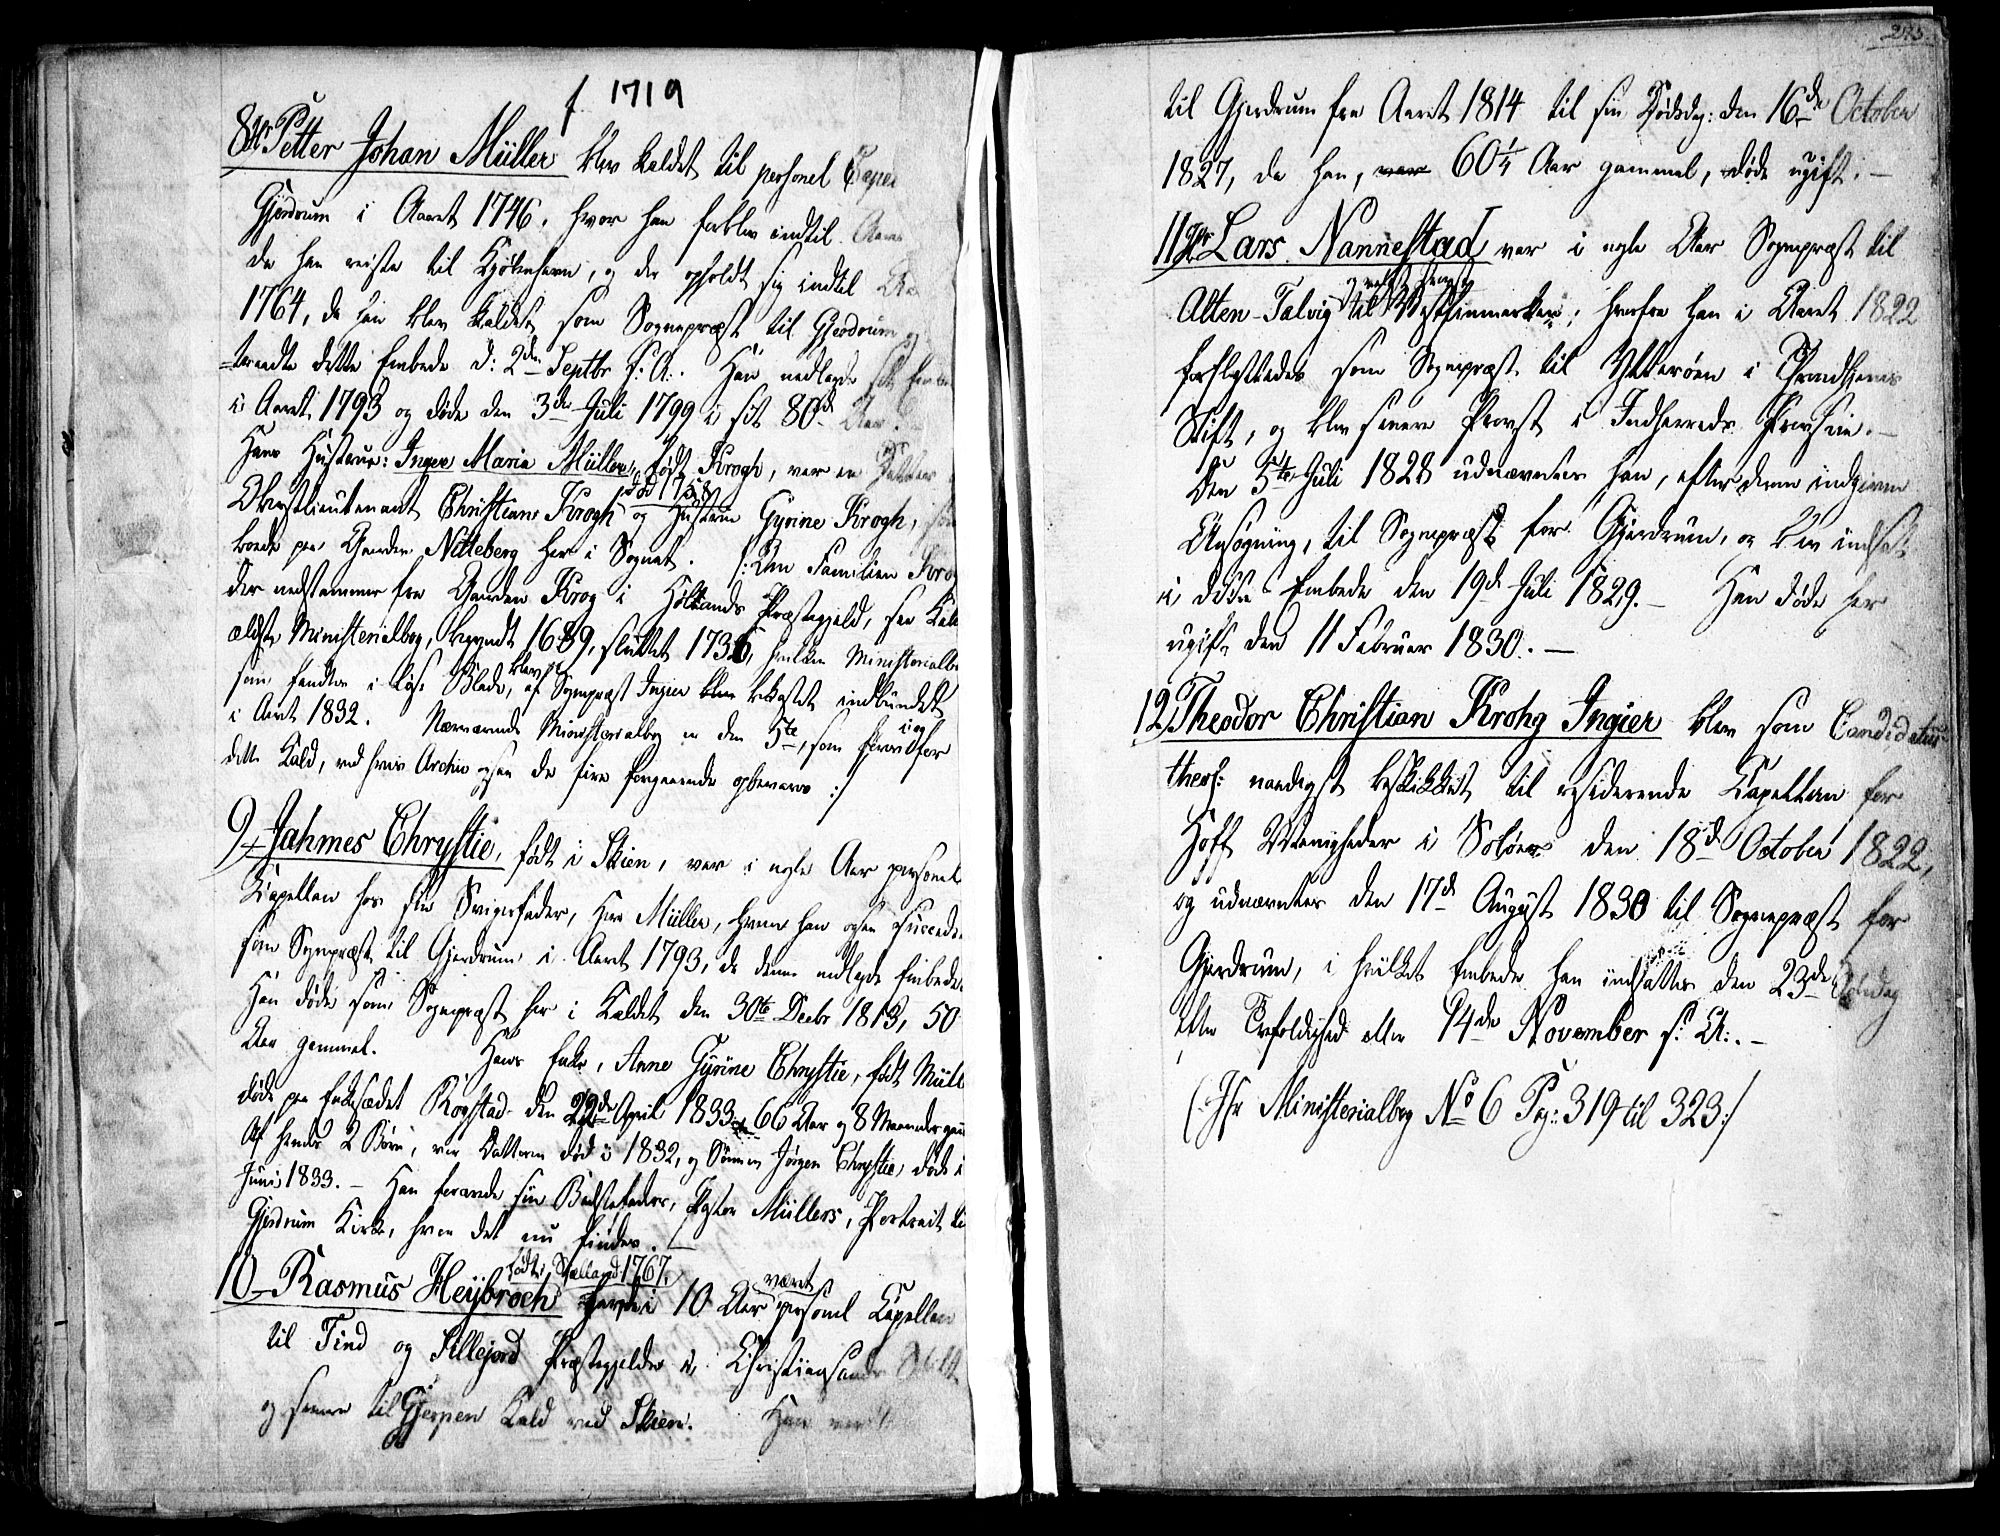 f 1719
8, Hr Petter Johan Müller blev kaldet til personel Capel
Gjerdrum i Aaret 1746, hvor han forblev indtil Aaret
da han reiste til Kjøbenhavn, og der opholdt sig indtil Aa
1764, da han blev kaldet som Sognepræst til Gjerdrum og
-traadte dette Embede d: 2den Septbr s: A:. Han nedlagde sit Embe
i Aaret 1793 og døde den 3de Juli 1799 i sit 80de Aar.
Hans Hustrue: Inger Maria Müller, født Krogh, var en Datter
død 1758
Obristlieutenant Christian Krogh og Hustrue Gyrine Krogh, som
boede paa Gaarden Nitteberg her i Sognet. /: Om Familien Krog
der nedstammer fra Gaarden Krog i Hølands Præstegjeld, see Kal
ældste Ministerialbog, begyndt 1689, sluttet 1736, hvilken Ministerialbo
blev
som fandtes i løse Blade, af Sognepræst Ingier blev bekostet indbundet
i Aaret 1832. Nærværende Ministerialbog er den 5te, som for
dette Kald, ved hvis Archiv ogsaa de fire foregaaende opbevares :/
9, Jahmes Chrystie, født i Skien, var i nogle Aar personel
Kapellan hos sin Svigerfader, Herr Müller, hvem han ogsaa succede
som Sognepræst til Gjerdrum i Aaret 1793, da denne nedlagde Embede
Han døde som Sognepræst her i Kaldet den 30te Decbr 1813, 50
Aar gammel. Hans Enke, Anne Gyrine Chrystie, født Müll
døde paa Enkesædet Rogstad den 22de April 1833 66 Aar og 8 Maaneder gam
Af hendes 2 Børn, var Datteren død i 1832, og Sønnen Jørgen Chrystie, døde i
Juni 1833. – Han forærede sin Bedstefaders, Pastor Müllers, Portrait ti
Gjerdrum Kirke, hvor det nu findes. –
født i Sælland 1767, været
10 – Rasmus Heÿbroch havde i 10 Aar personel Capellan
til Tind og Sillejord Præstegjelder i Christiansands Stift
og senere til Gjerpen Kald ved Skien. Han var
273.
til Gjerdrum fra Aaret 1814 til sin Dødsdag: den 16de October
1827, da han, var 60 1/4 Aar gammel, døde ugift. –
11, Hr Lars Nannestad var i nogle Aar Sognepræst til
Alten-Talvig til Vestfinmarken; herfra han i Aaret 1822
forflyttedes som Sognepræst til Ytterøen i Trondhjems
Stift, og blev senere Provst i Indherreds Provstie. –
Den 5te Juli 1828 udnævntes han, efter derom indgiven
Ansøgning, til Sognepræst for Gjerdrum, og blev indsat
i dette Embede den 19de Juli 1829. – Han døde her
ugift den 11 Februar 1830. –
12, Theodor Christian Krohg Ingier blev som Candidatus
theol: naadigst beskikket til residerende Capellan for
Hoff Menigheder i Soløer den 18de October 1822,
og udnævntes den 17de August 1830 til Sognepræst for
Gjerdrum, i hvilket Embede han indsattes den 23de Søndag
efter Trefoldighed eller 14de November s: A:. –
(: Jfr Ministerialbog No 6 Pag: 319 til 323 :/